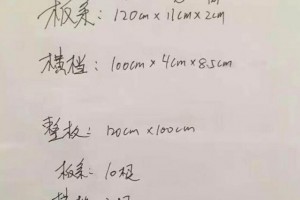 板条：120cm×11cm×2cm
横档：100cm×4cm×8.5cm
整板：120cm×100cm
板条：10根